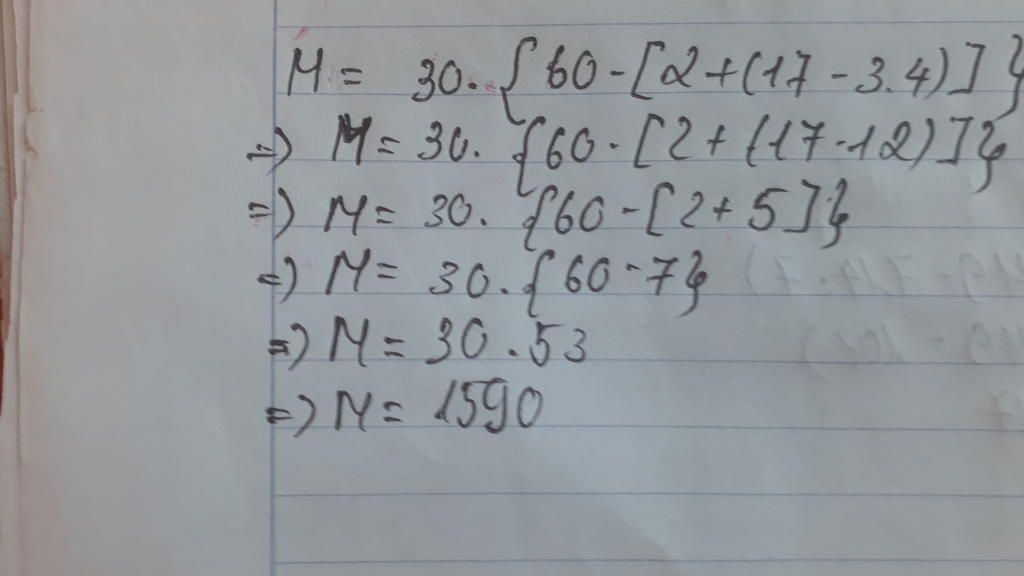 M = 30. {60 - [2 + (17 - 3.4)]}
=) M = 30. {60 - [2 + (17 - 12)]}
=) M = 30. {60 - [2 + 5]}
=) M = 30. {60 - 7}
=) M = 30 . 53
=) M = 1590